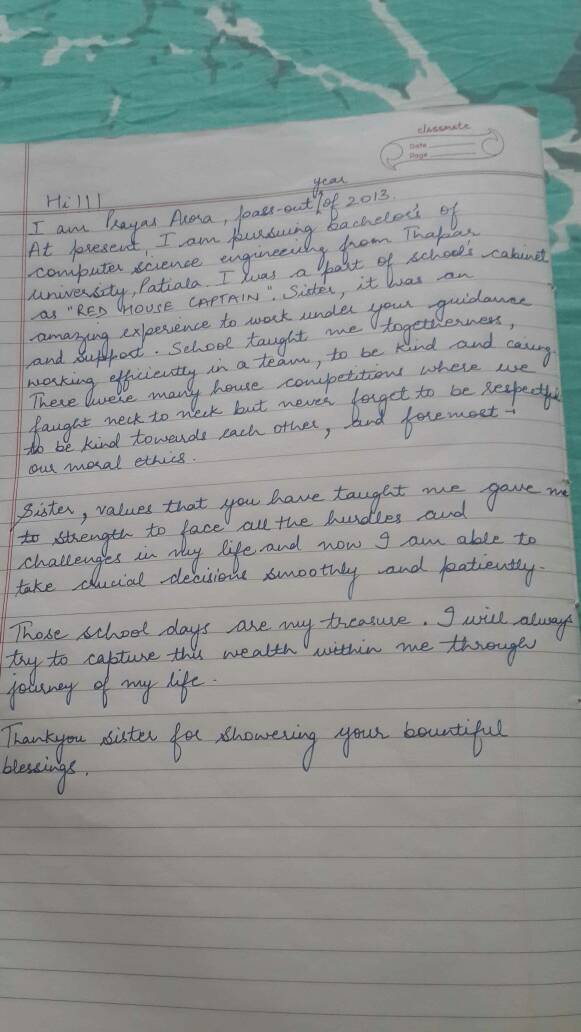 classmate
Date
Page
Hi!!!
year
I am Prayas Arora, pass-out of 2013.
At present, I am pursuing bachelor's of
computer science engineering from Thapar
university, Patiala. I was a part of school's cabinet
as "RED HOUSE CAPTAIN". Sister, it was an
amazing experience to work under your guidance
and support. School taught me togetherness,
working efficiently in a team, to be kind and caring.
There were many house competitions where we
faught neck to neck but never forget to be respectful
to be kind towards each other, and foremost
our moral ethics.
Sister, values that you have taught me gave me
to strength to face all the hurdles and
challenges in my life and now I am able to
take crucial decisions smoothly and patiently.
Those school days are my treasure. I will always
try to capture this wealth within me through
journey of my life.
Thankyou sister for showering your bountiful
blessings.